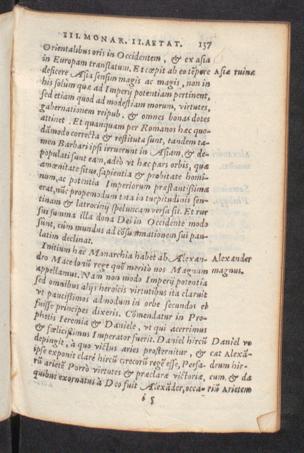 III. MONAR. II. AETAT. 137
Orientalibus oris in Occidentem, & ex asia
in Europam translatum. Et cœpit ab eo tēpore Asiæ ruinæ
deficere Asia sensim magis ac magis, non in
his solùm quæ ad Imperij potentiam pertinent,
sed etiam quod ad modestiam morum, virtutes,
gubernationem reipub. & omnes bonas dotes
attinet. Et quanquam per Romanos hæc quo-
dāmodo correcta & restituta sunt, tandem ta-
men Barbari ipsi irruerunt in Asiam, & de-
populati sunt eam, adeò vt hæc pars orbis, quæ
amœnitate situs, sapientia & probitate homi-
num, ac potentia Imperiorum præstantissima
erat, nūc propemodum tota in turpitudinis sen-
tinam & latrocinij speluncam versa sit. Et rur
sus summa illa dona Dei in Occidente modo
sunt, cùm mundus ad cōsummationem sui pau-
latim declinat.
Initium hæc Monarchia habet ab Alexan- Alexander
dro Macedonū rege quē meritò nos Magnum magnus.
appellamus. Nam non modo Imperij potentia
sed omnibus alijs heroicis virtutibus ita claruit
vt paucissimos admodum in orbe secundos ei
fuisse principes dixeris. Cōmendatur in Pro-
phetis Ieremia & Daniele, vt qui acerrimus
& fœlicissimus Imperator fuerit. Daniel hircū Daniel vo
depingit, à quo victus aries prosternitur, & cat Alexā-
ipse exponit clarè hircū Grecorū regē esse, Persa- drum hir-
rū arietē Porrò virtutes & præclaræ victoriæ, cum, & da
quibus exornatus à Deo fuit Alexāder, occa- riū Arietem